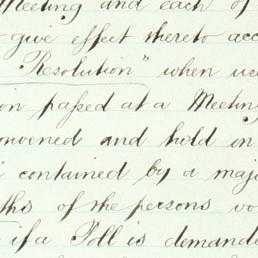 Meeting and each of
give effect thereto acc
Resolution" when us
on passed at a Meeting
onvened and held in
contained by a maj
ths of the persons vo
if a Poll is demand